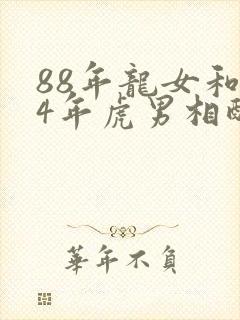 88年龍女和
4年虎男相配
華年不負